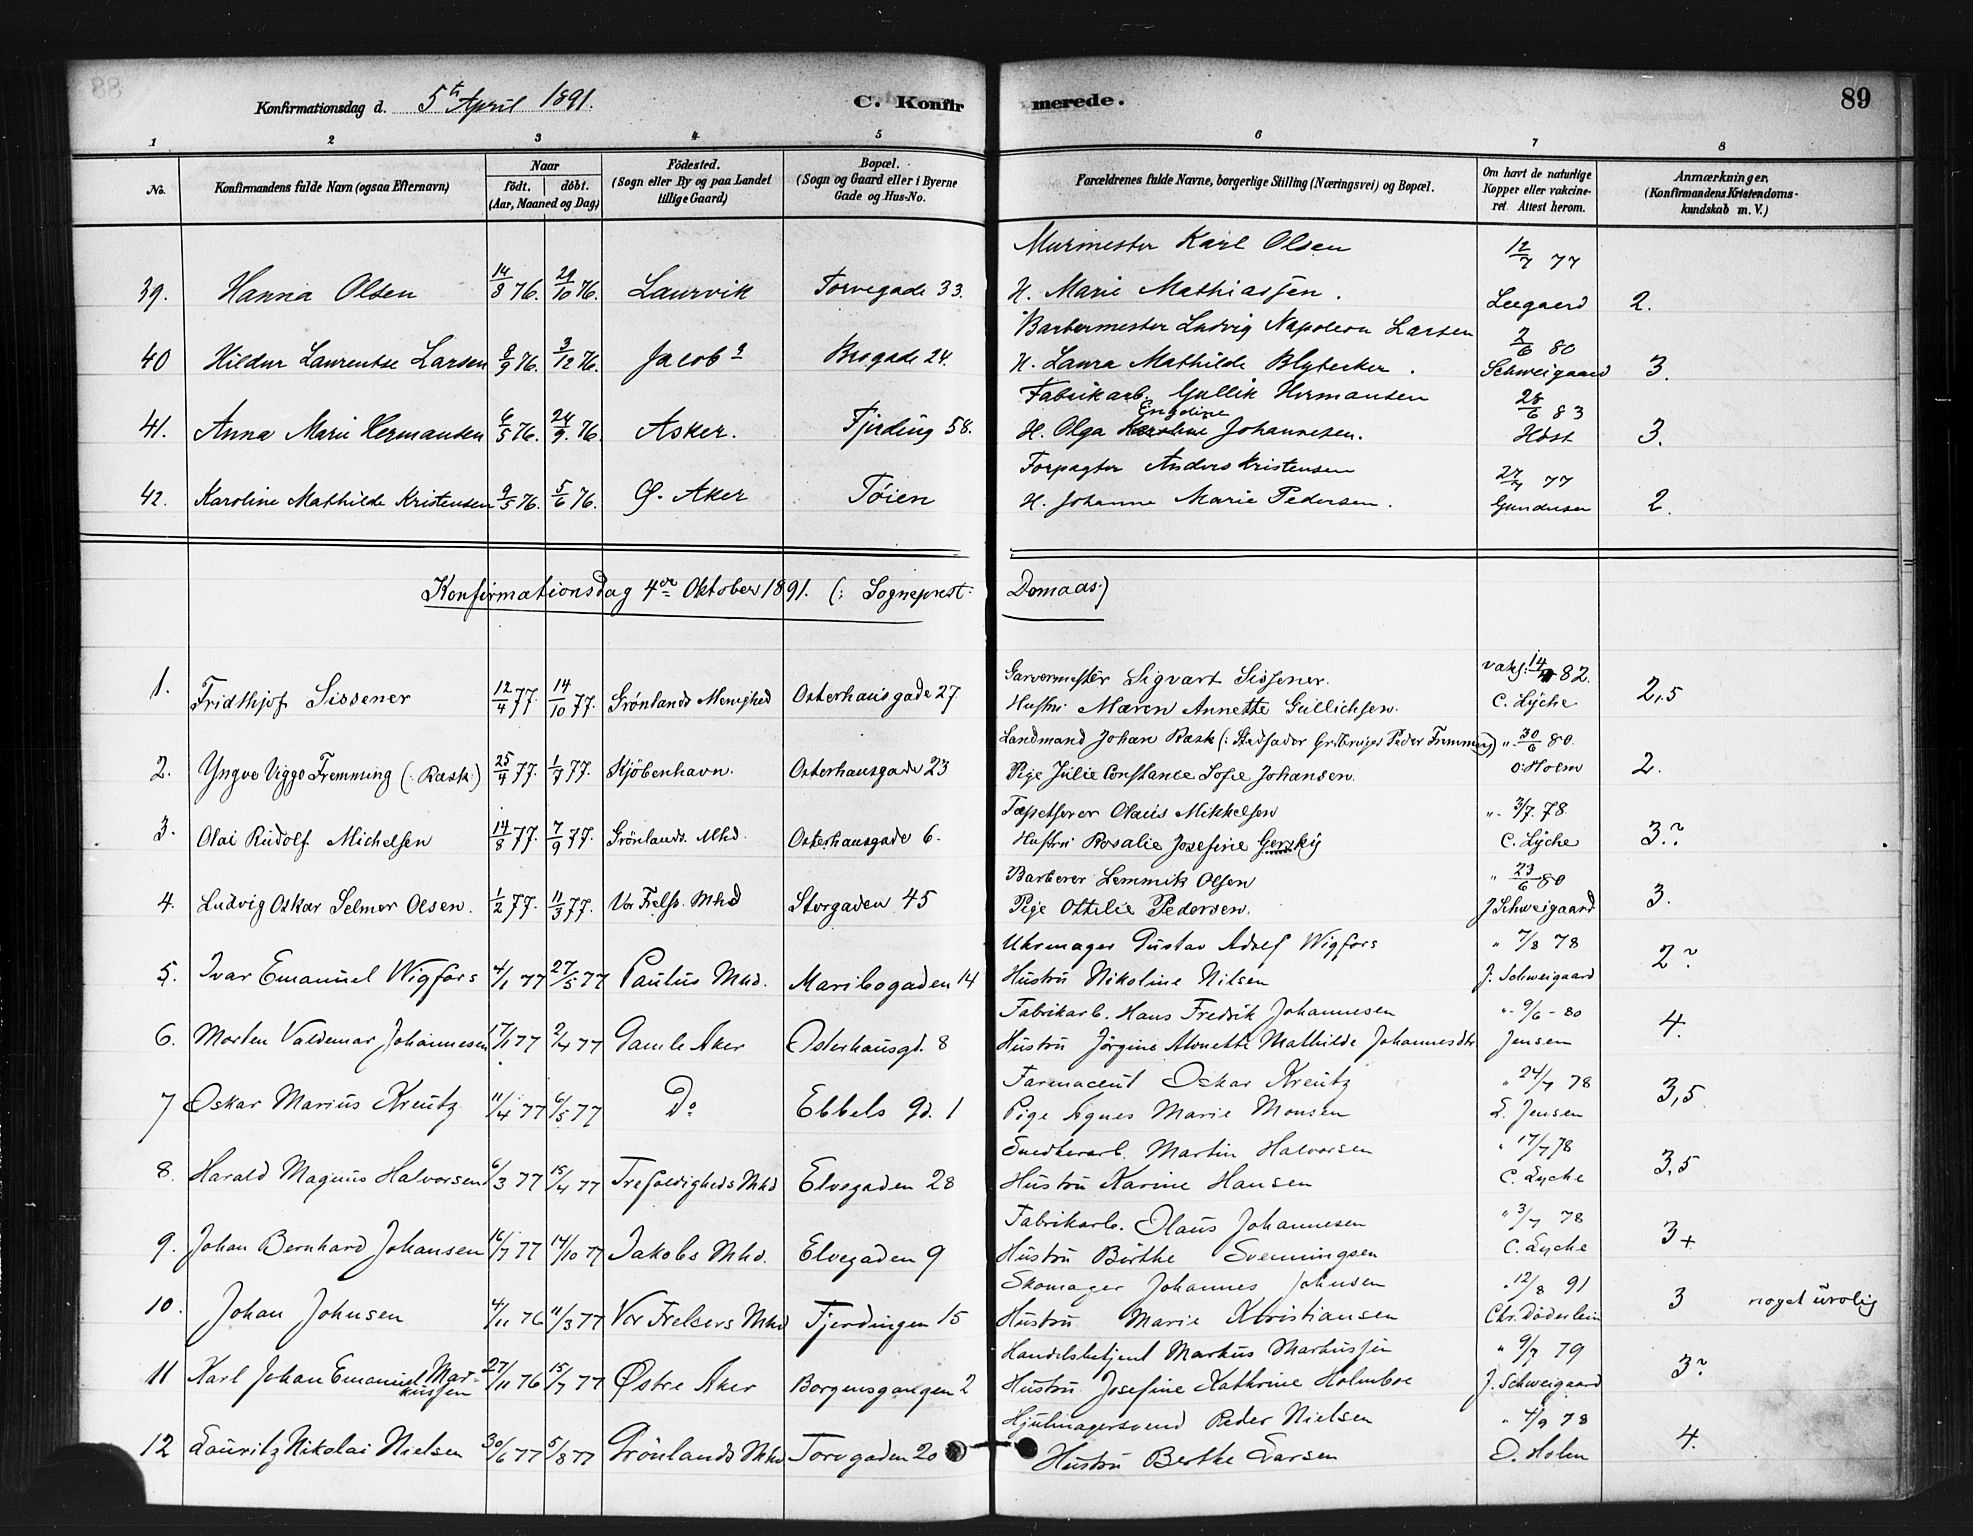 Konfirmationsdag d. 5te April 1891. C. Konfirmerede. 89
1 2 3 4 5 6 7 8
No. Konfirmandens fulde Navn (ogsaa Efternavn) Naar født. døbt. (Aar, Maaned og Dag) Fødested. (Sogn eller By og paa Landet tillige Gaard) Bopæl. (Sogn og Gaard eller i Byerne Gade og Hus-No. Forældrenes fulde Navne, borgerlige Stilling (Næringsvei) og Bopæl. Om havt de naturlige Kopper eller vakcineret. Attest herom. Anmærkninger, (Konfirmandens Kristendomskundskab m. V.)
Murmester Karl Olsen 12/7 77
39. Hanna Olsen 14/8 76. 29/10 76. Laurvik Torvegade 33. H. Marie Mathiassen. Leegaard 2.
Barbermester Ludvig Napoleon Larsen 2/6 80
40 Hildur Laurentse Larsen 8/9 76. 3/12 76. Jacobs Brogade 24. H. Laura Mathilde Blybecker. Schweigaard 3.
Fabrikarb. Gullik Hermansen 28/6 83
41. Anna Marie Hermansen 6/5 76. 24/9 76. Asker. Fjerding 58. H. Olga Engeline Johannesen. Høst 3.
Forpagter Anders Kristensen 27/7 77
42. Karoline Mathilde Kristensen 9/5 76. 5/6 76. Ø. Aker Tøien H. Johanne Marie Pedersen. Gundersen 2.
Konfirmationsdag 4de Oktober 1891. (: Sogneprest Domaas:)
Garvermester Sigvart Sissener. vaks. 14/ 82.
1. Fridthjof Sissener 12/4 77. 14/10 77. Grønlands Menighed Osterhausgade 27 Hustru Maren Annette Gullichsen. C. Lyche 2,5
Landmand Johan Rask (: Stedfader Grdbruger Peder Fremming) " 30/6 80.
2. Yngve Viggo Fremming (: Rask:) 25/4 77. 1/7 77. Kjøbenhavn. Osterhausgade 23 Pige Julie Constance Sofie Johansen. O. Holm 2.
Tapetserer Olaus Mikkelsen " 3/7. 78.
3. Olai Rudolf Michelsen 14/8 77. 7/9 77. Grønlands Mhd. Osterhausgade 6. Hustru Rosalie Josefine Gersky C. Lyche 3.?
Barberer Lemmik Olsen " 23/6 80
4. Ludvig Oskar Selmer Olsen. 1/2 77. 11/3 77. Vor Frelss. Mhd Storgaden 45 Pige Ottilie Pedersen. J Schweigaard 3.
Uhrmager Gustav Adolf Wigfors " 7/8 78
5. Ivar Emanuel Wigfors 4/1 77 27/5 77 Paulus Mhd. Maribogaden 14 Hustru Nikoline Nilsen J. Schweigaard 2?
Fabrikarb. Hans Fredrik Johannesen " 9/6 - 80
6. Morten Valdemar Johannesen 17/1 77 2/4 77 Gamle Aker Osterhausgd. 8 Hustru Jørgine Alvnette Mathilde Johannesdtr Jensen 4.
Farmaceut Oskar Kreutz " 24/7 78
7 Oskar Marius Kreutz 11/4 77 6/5 77 Do Ebbels gd. 1 Pige Agnes Marie Monsen L. Jensen 3,5
Snedkerarb. Martin Halvorsen " 17/7 78
8. Harald Magnus Halvorsen 6/3 77 15/4 77 Trefoldigheds Mhd Elvegaden 28 Hustru Karine Hansen C. Lyche 3,5
Fabrikarb. Olaus Johannesen " 3/7 78
9. Johan Bernhard Johansen 16/7 77 14/10 77 Jakobs Mhd. Elvegaden 9 Hustru Birthe Svenningsen C. Lyche 3+
Skomager Johannes Johnsen " 12/8 91
10. Johan Johnsen 4/11 76 11/3 77 Vor Frelsers Mhd Fjerdingen 15 Hustru Marie Kristiansen Chr. Døderlein 3 noget urolig
Handelsbetjent Markus Markussen " 9/7 79
11 Karl Johan Emanuel Markussen 27/11 76 15/7 77 Østre Aker Borgensgangen 2 Hustru Josefine Kathrine Holmboe J. Schweigaard 3?
Hjulmagersvend Peder Nielsen " 4/9 78
12 Lauritz Nikolai Nielsen 30/6 77 5/8 77 Grönlands Mhd Torvgaden 20 Hustru Berthe Larsen O. Holm 4.